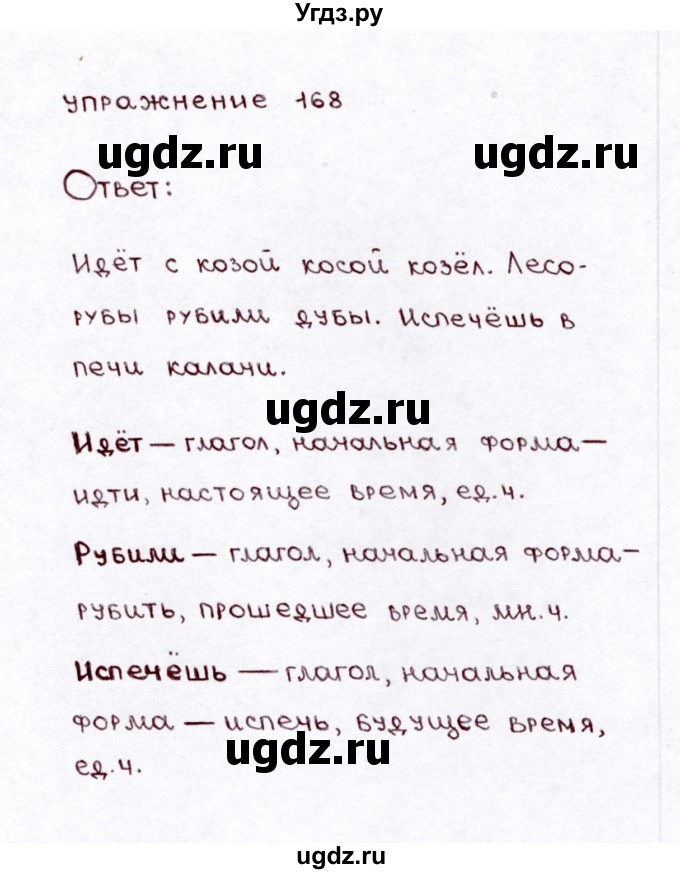 Угдз.ру
упражнение 168
ugdz.ru ugdz.ru
Ответ:
Идёт с козой косой козёл. Лесо-
рубы рубили дубы. Испечёшь в
печи калачи.
ugdz.ru
Идёт — глагол, начальная форма —
идти, настоящее время, ед.ч.
Рубили — глагол, начальная форма —
рубить, прошедшее время, мн.ч.
Испечёшь — глагол, начальная
форма — испечь, будущее время,
ugdz.ru
ед.ч.
ugdz.ru